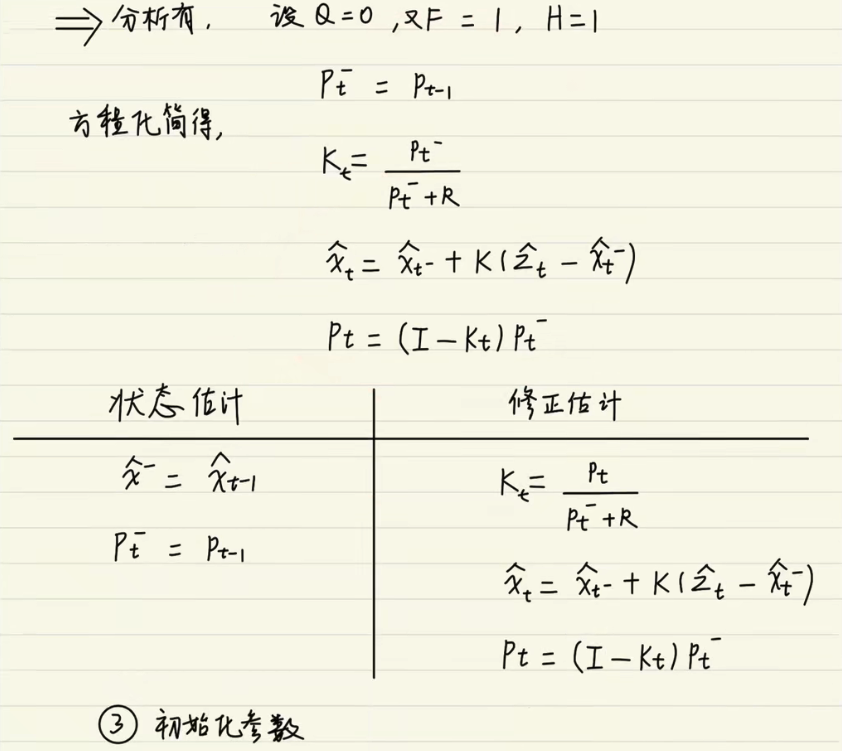 ⟹ 分析有, 设 Q=0 ,又F = 1, H=1
P_t^- = P_{t-1}
方程化简得,
K_t = \frac{P_t^-}{P_t^- + R}
\hat{x}_t = \hat{x}_{t^-} + K(\hat{z}_t - \hat{x}_t^-)
P_t = (I - K_t) P_t^-
状态估计
\hat{x}^- = \hat{x}_{t-1}
P_t^- = P_{t-1}
修正估计
K_t = \frac{P_t}{P_t^- + R}
\hat{x}_t = \hat{x}_{t^-} + K(\hat{z}_t - \hat{x}_t^-)
P_t = (I - K_t) P_t^-
③ 初始化参数